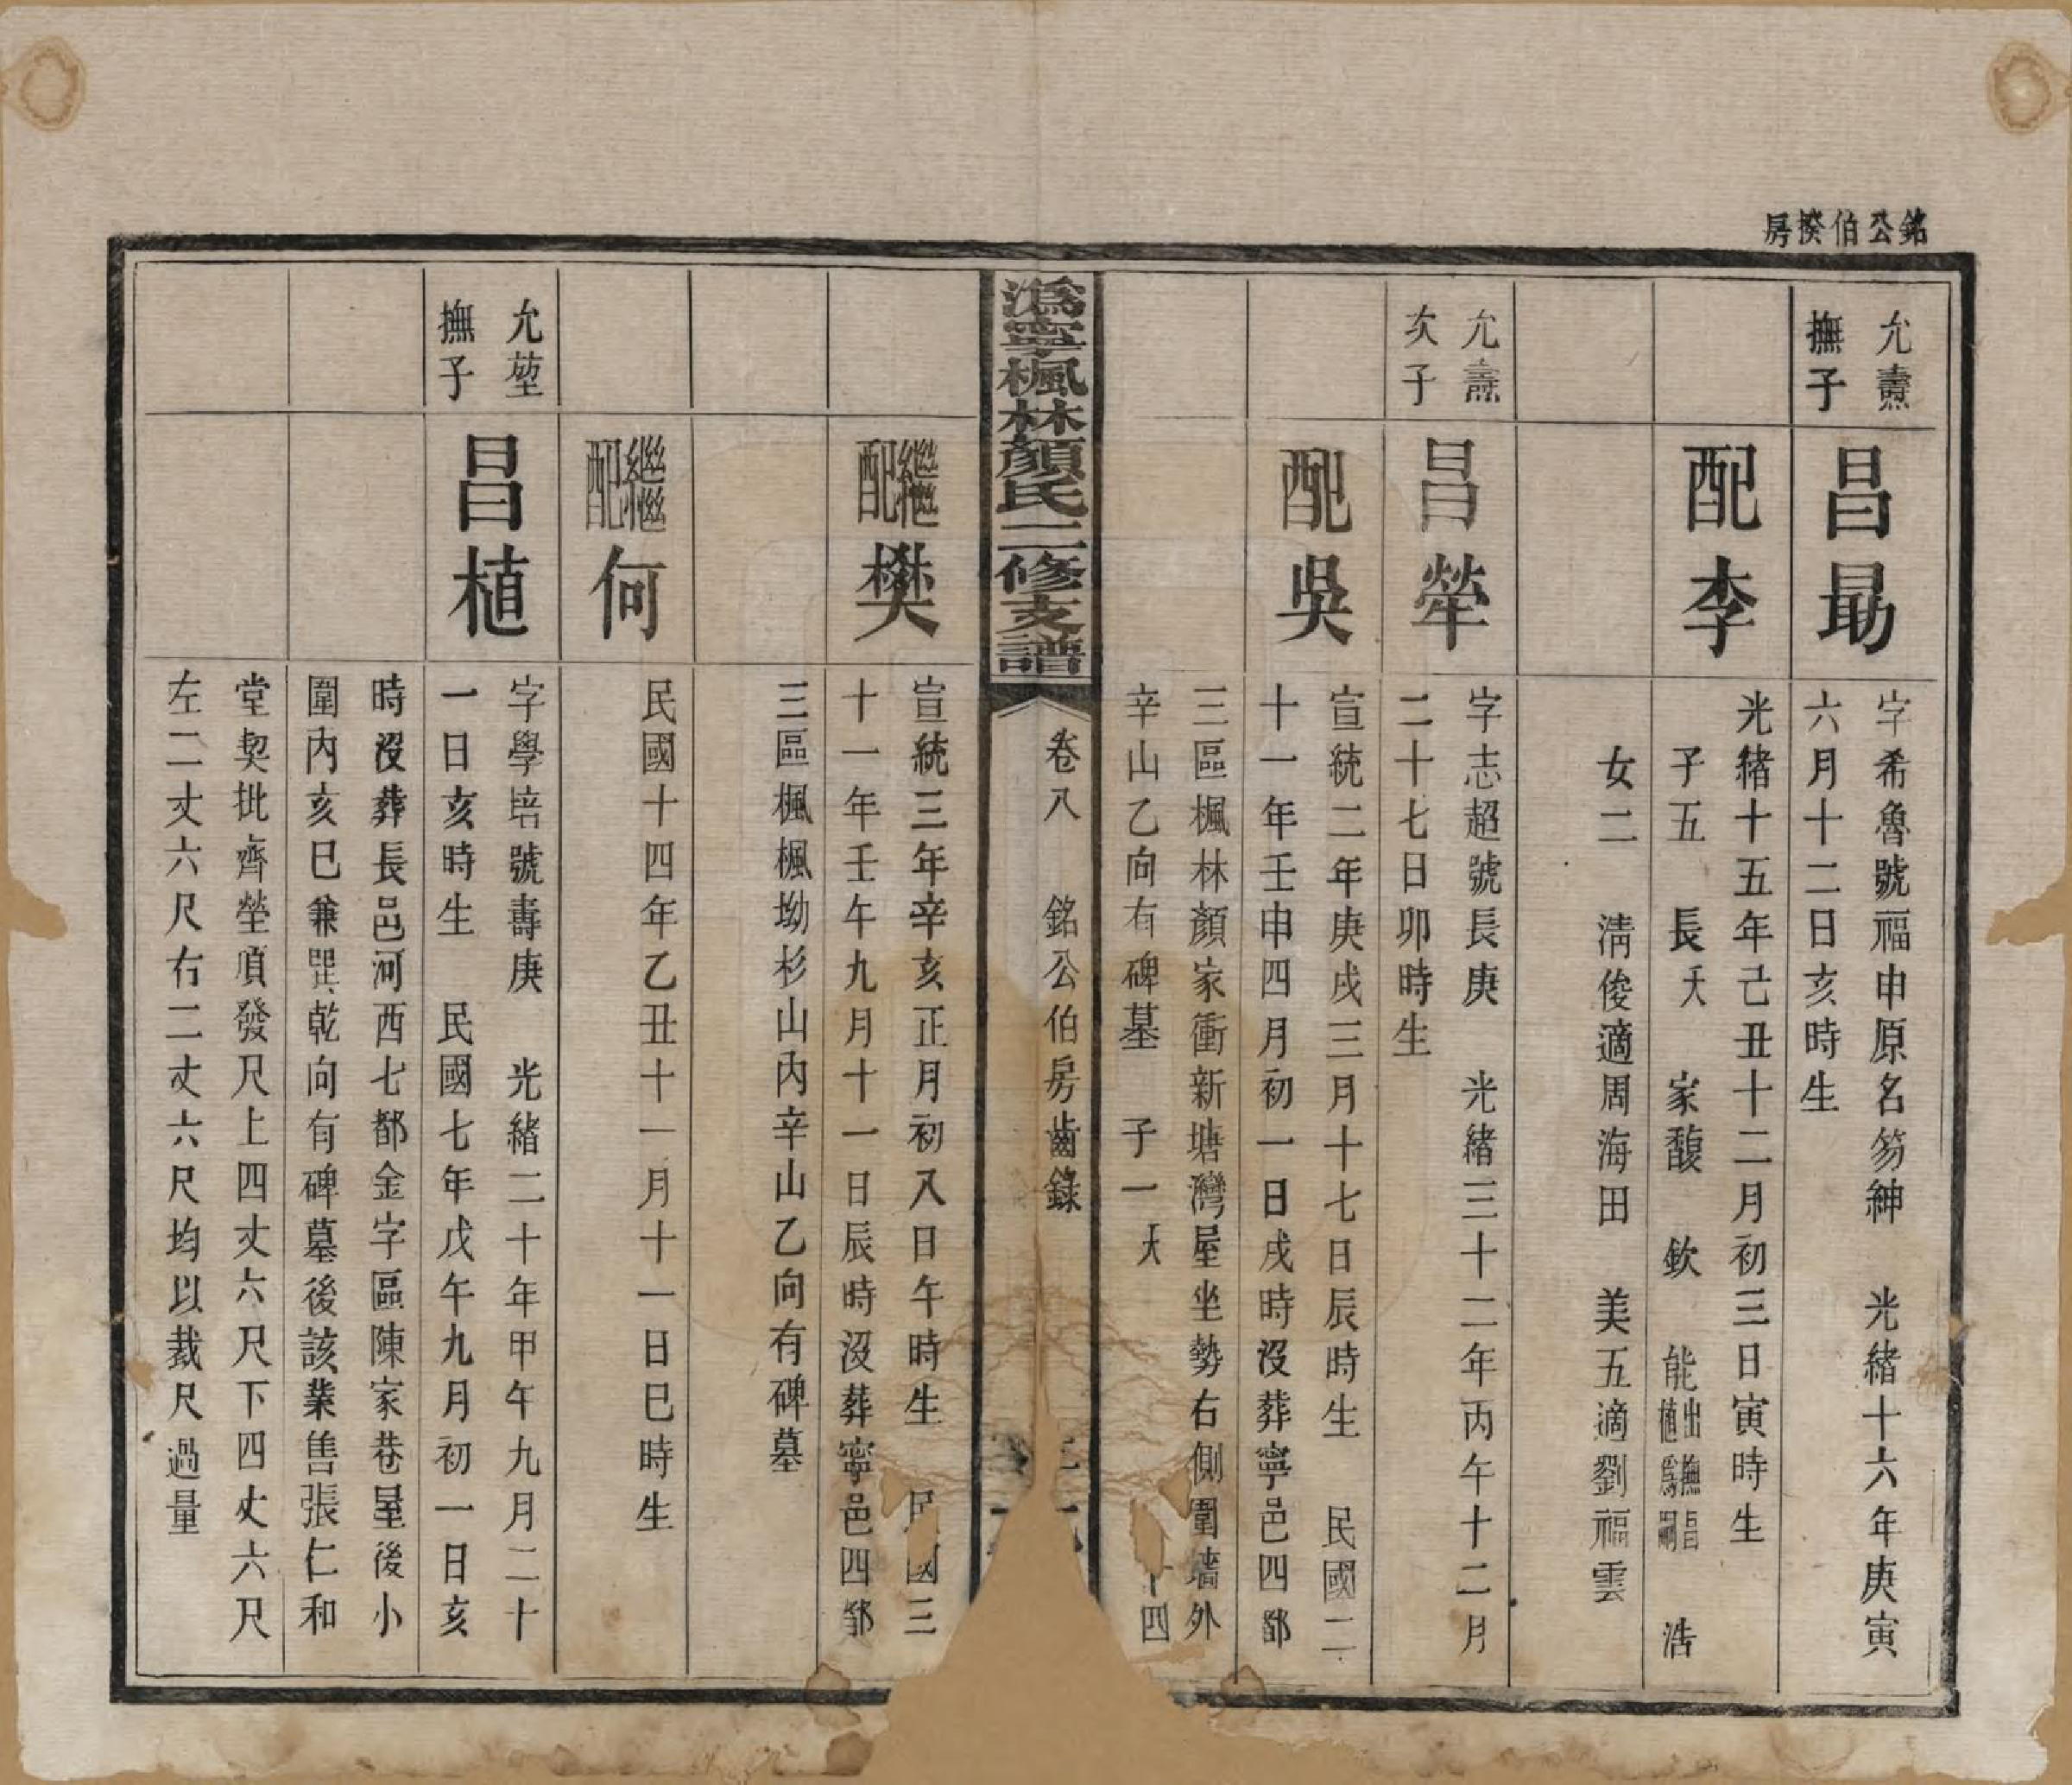 銘公伯揆房
允燾
撫子
昌勗
字希魯號福申原名笏紳　光緒十六年庚寅
六月十二日亥時生
配李
光緒十五年己丑十二月初三日寅時生
子五　長夭　家馥　欽　能出撫昌植爲嗣　浩
女二　淸俊適周海田　美五適劉福雲
允燾
次子
昌犖
字志超號長庚　光緒三十二年丙午十二月
二十七日卯時生
配吳
宣統二年庚戌三月十七日辰時生　民國二
十一年壬申四月初一日戌時沒葬寧邑四都
三區楓林顏家衝新塘灣屋坐勢右側圍墻外
辛山乙向有碑墓　子一夭
十四
潙寧楓林顏氏三修支譜
卷八　銘公伯房齒錄
繼配樊
宣統三年辛亥正月初八日午時生　民國三
十一年壬午九月十一日辰時沒葬寧邑四都
三區楓楓坳杉山內辛山乙向有碑墓
繼配何
民國十四年乙丑十一月十一日巳時生
允堃
撫子
昌植
字學培號壽庚　光緒二十年甲午九月二十
一日亥時生　民國七年戊午九月初一日亥
時沒葬長邑河西七都金字區陳家巷屋後小
圍內亥巳兼巽乾向有碑墓後該業售張仁和
堂契批齊塋頂發尺上四丈六尺下四丈六尺
左二丈六尺右二丈六尺均以裁尺過量